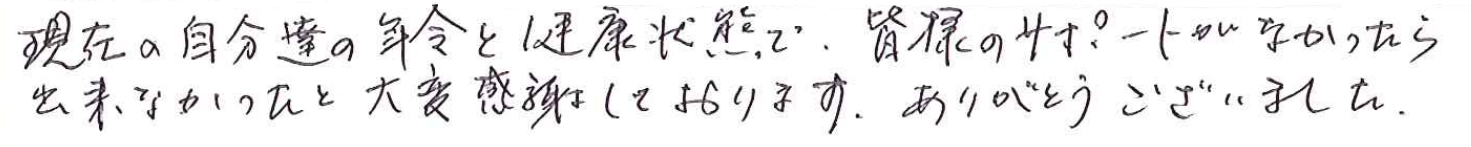 現在の自分達の年令と健康状態で、皆様のサポートがなかったら
出来なかったと大変感謝しております。ありがとうございました.